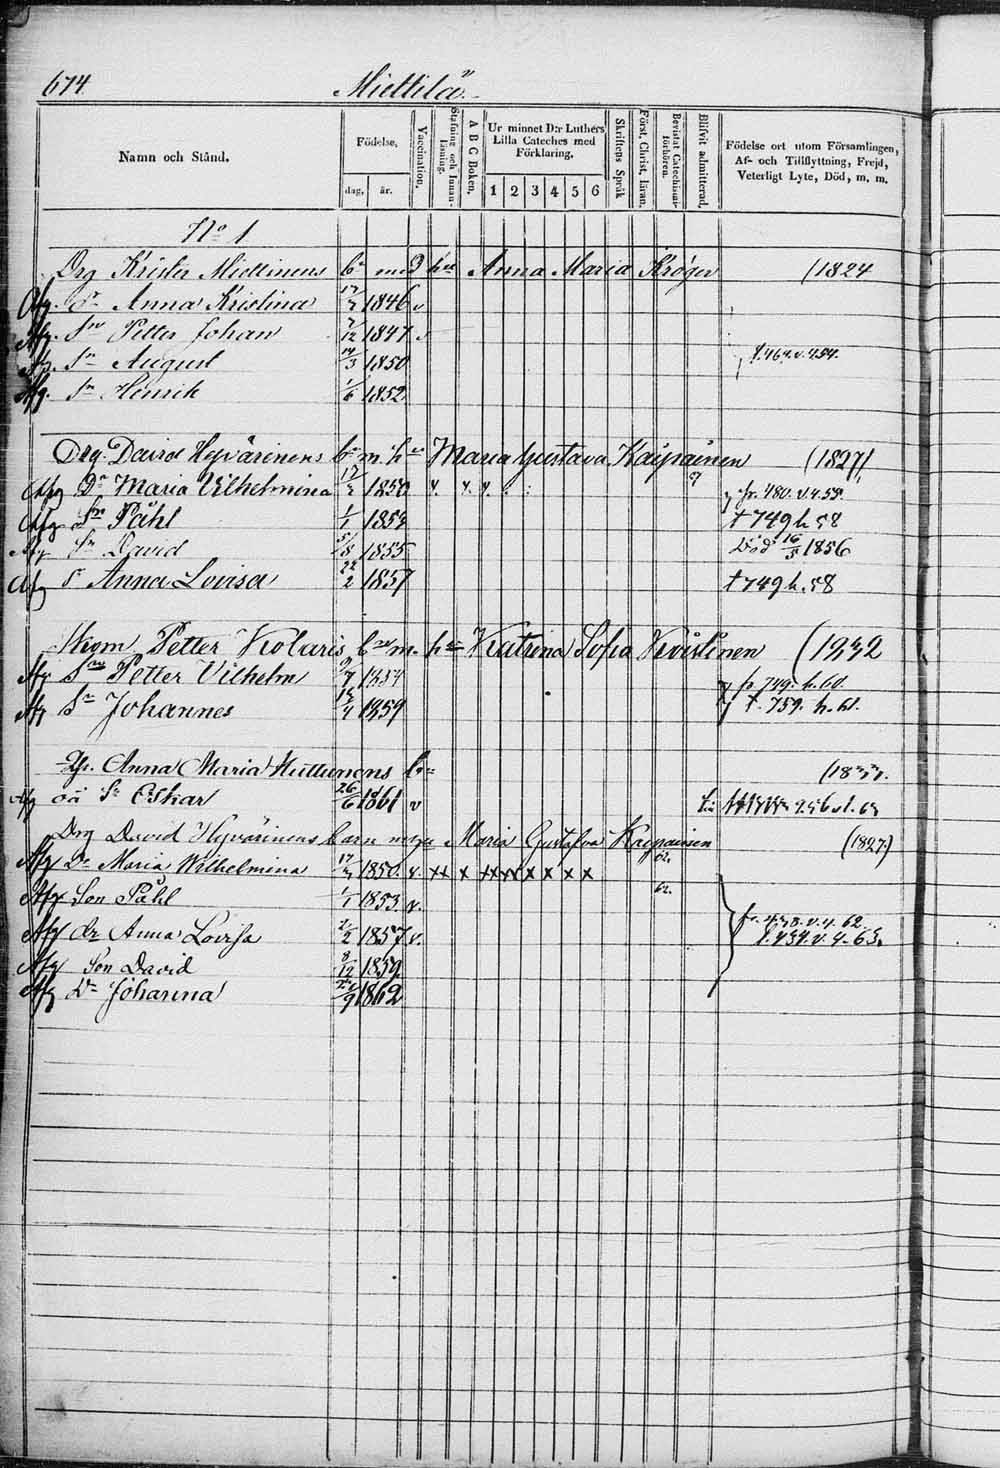 674
Miettilä.
Namn och Stånd.
Födelse,
dag,
år.
Vaccination.
Stafning och Innanläsning.
A B C Boken.
Ur minnet D:r Luthers Lilla Cateches med Förklaring.
1 2 3 4 5 6
Skriftens Språk
Först. Christ. läran.
Bevistat Catechismiförhören.
Blifvit admitterad.
Födelse ort utom Församlingen, Af- och Tillflyttning, Frejd, Veterligt Lyte, Död, m. m.
No 1
Drg Krister Miettinens bn med hu Anna Maria Kröger (1824
Afg. Dr Anna Kristina 1846 v
Afg. Sn Petter Johan 7/12 1847 v
Afg. Sn August 14/3 1850
Afg. Sn Henrik 1/6 1852
Drg. David Hyvärinens bn m. hu Maria Gustava Kaipainen (1827)
Afg Dr Maria Vilhelmina 1850 fr. 480. v. 4. 58.
Afg Sn Påhl 1/1 1853 † 749 h. 58
Afg Sn David 1855 Död 16/5 1856
Afg Dr Anna Lovisa 22/2 1857 † 749 h. 58
Petter Kolaris bn m. hu Katrina Sofia (1832
Afg Sn Petter Vilhelm 1854 fr 749. h. 60.
Afg Sn Johannes 1859 t. 759. h. 61.
Anna Maria Huttunens bn
Afg oä Sn Oskar 26/6 1861 v
Drg David Hyvärinens barn med Maria Gustafva Kaipainen (1827.)
Afg Dr Maria Wilhelmina 1850. v. xx x xx xx x x x x 62.
Afg Son Påhl 1/1 1853. v. 62.
Afg dr Anna Lovisa 1857 v. t. 434. v. 4. 63.
Afg Son David 8/12 1859
Afg Dr Johanna 1862